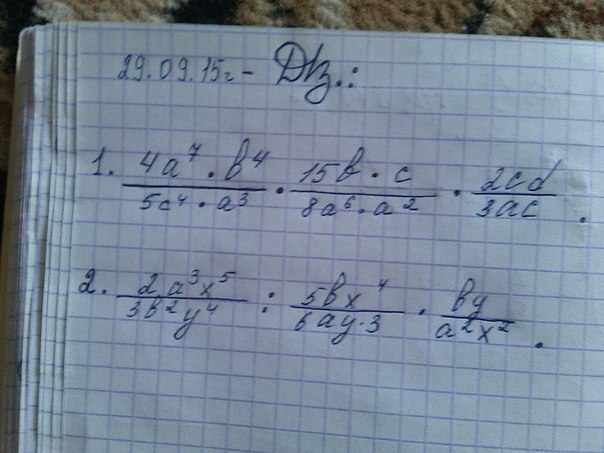 29.09.15г - Д/з.:
1. 4a⁷ · b⁴ / 5c⁴ · a³ · 15b · c / 8a⁶ · a² · 2cd / 3ac .
2. 2a³x⁵ / 3b²y⁴ : 5bx⁴ / 6ay·3 · by / a²x² .